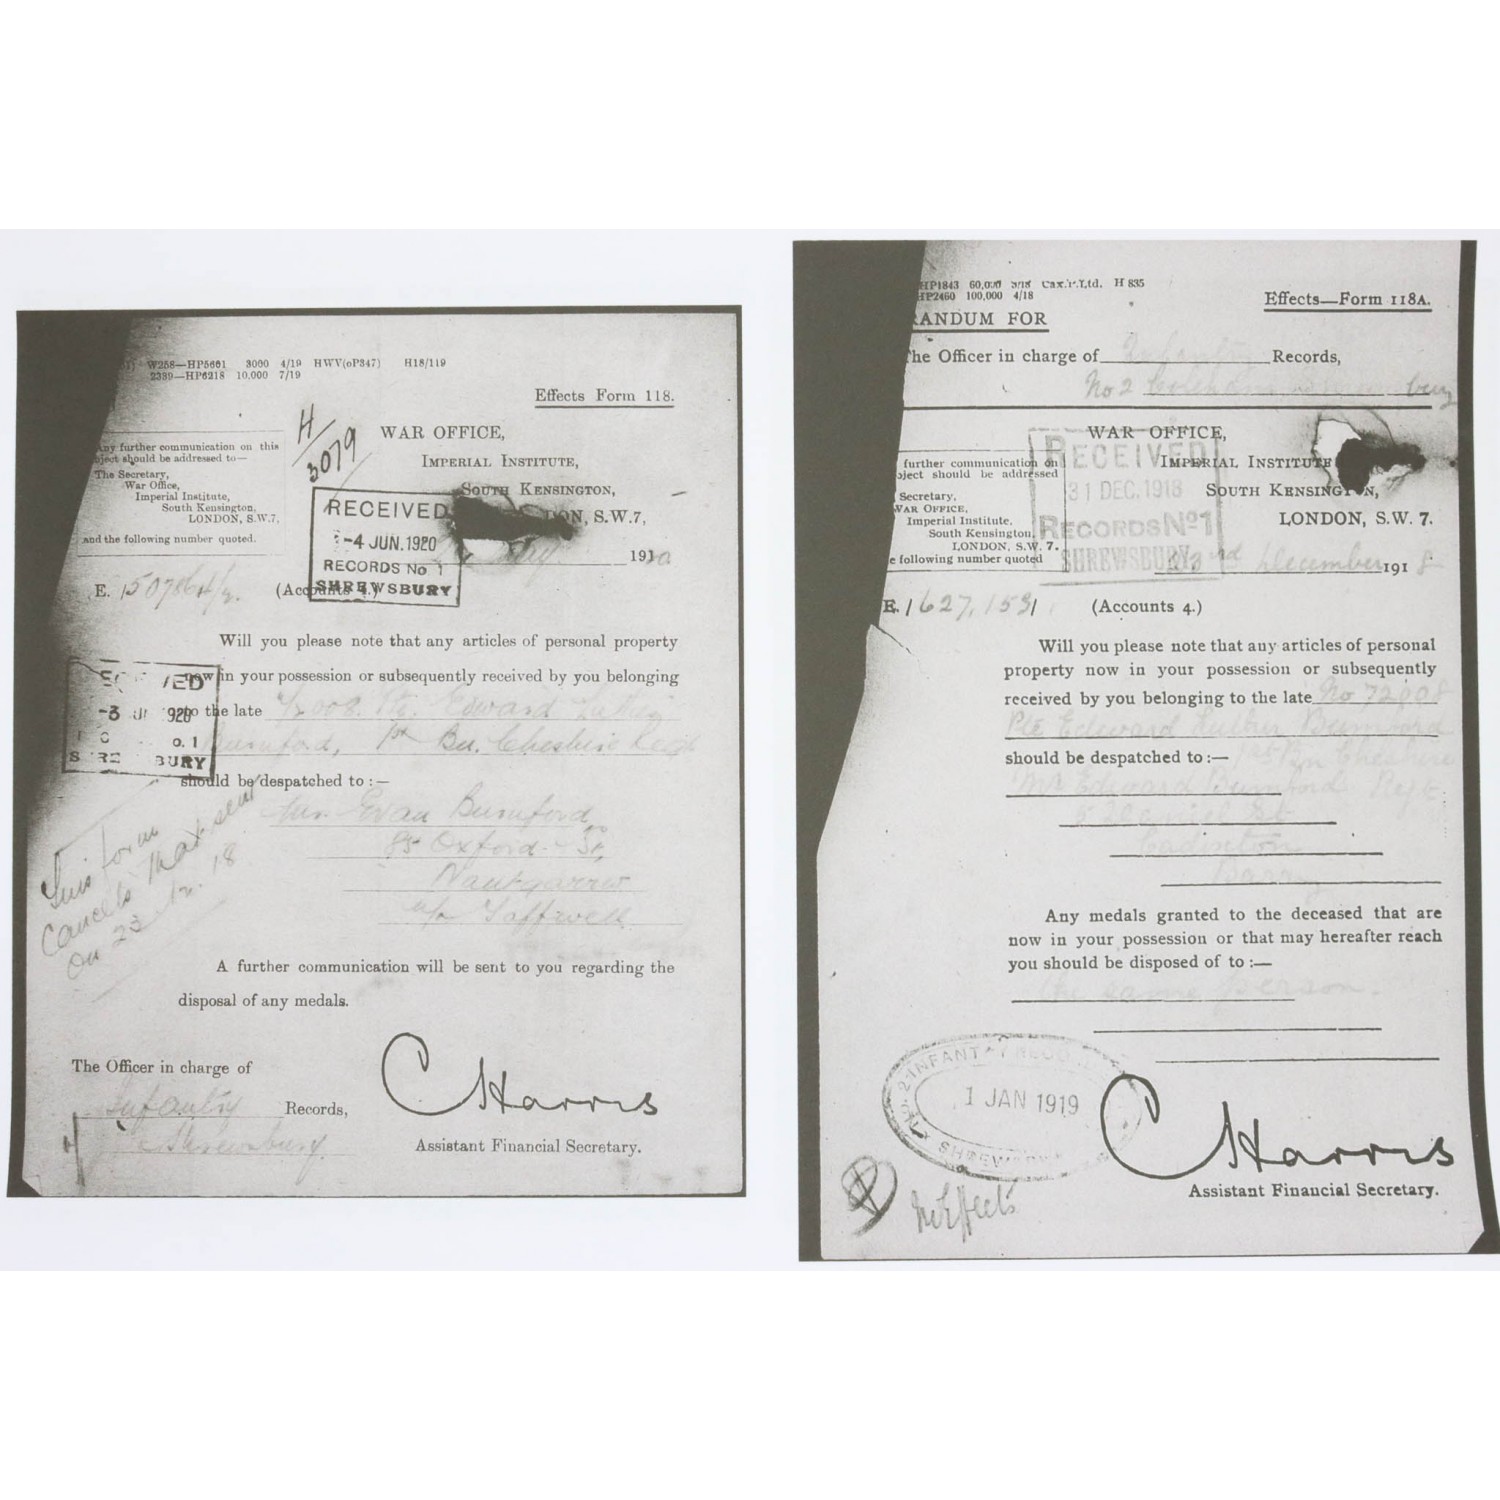 W258—HP5661 3000 4/19 HWV(oP347) H18/119
2389—HP6218 10,000 7/19
Effects Form 118.
H/3079
WAR OFFICE,
IMPERIAL INSTITUTE,
SOUTH KENSINGTON,
LONDON, S.W.7,
Any further communication on this
subject should be addressed to—
The Secretary,
War Office,
Imperial Institute,
South Kensington,
LONDON, S.W.7,
and the following number quoted.
RECEIVED
-4 JUN.1920
RECORDS No 1
SHREWSBURY
May 1920
E. (Accounts 4.)
Will you please note that any articles of personal property
now in your possession or subsequently received by you belonging
to the late Pte. Edward Luther
Bumford, 1st Bn. Cheshire Regt
should be despatched to :—
-3 1920
Evan Bumford
85 Oxford St,
Nantgarrw
Taffswell
This form
cancels that sent
on 23 12. 18
A further communication will be sent to you regarding the
disposal of any medals.
The Officer in charge of
Infantry Records,
Shrewsbury.
C Harris
Assistant Financial Secretary.
HP1843 60,000 3/18 H 835
HP2460 100,000 4/18
Effects—Form 118A.
RANDUM FOR
The Officer in charge of Infantry Records,
No 2
WAR OFFICE,
IMPERIAL INSTITUTE
SOUTH KENSINGTON,
LONDON, S.W. 7.
further communication on
bject should be addressed
Secretary,
WAR OFFICE,
Imperial Institute,
South Kensington,
LONDON, S.W. 7.
e following number quoted
RECEIVED
31 DEC.1918
RECORDS No 1
SHREWSBURY
23rd December 1918
E./627,153/ (Accounts 4.)
Will you please note that any articles of personal
property now in your possession or subsequently
received by you belonging to the late No 72008
Pte Edward Luther Bumford
should be despatched to :— 1st Bn Cheshire
Mr Edward Bumford Regt
St
Cadoxton
Barry
Any medals granted to the deceased that are
now in your possession or that may hereafter reach
you should be disposed of to :—
the same person.
1 JAN 1919
C Harris
Assistant Financial Secretary.
No Effects